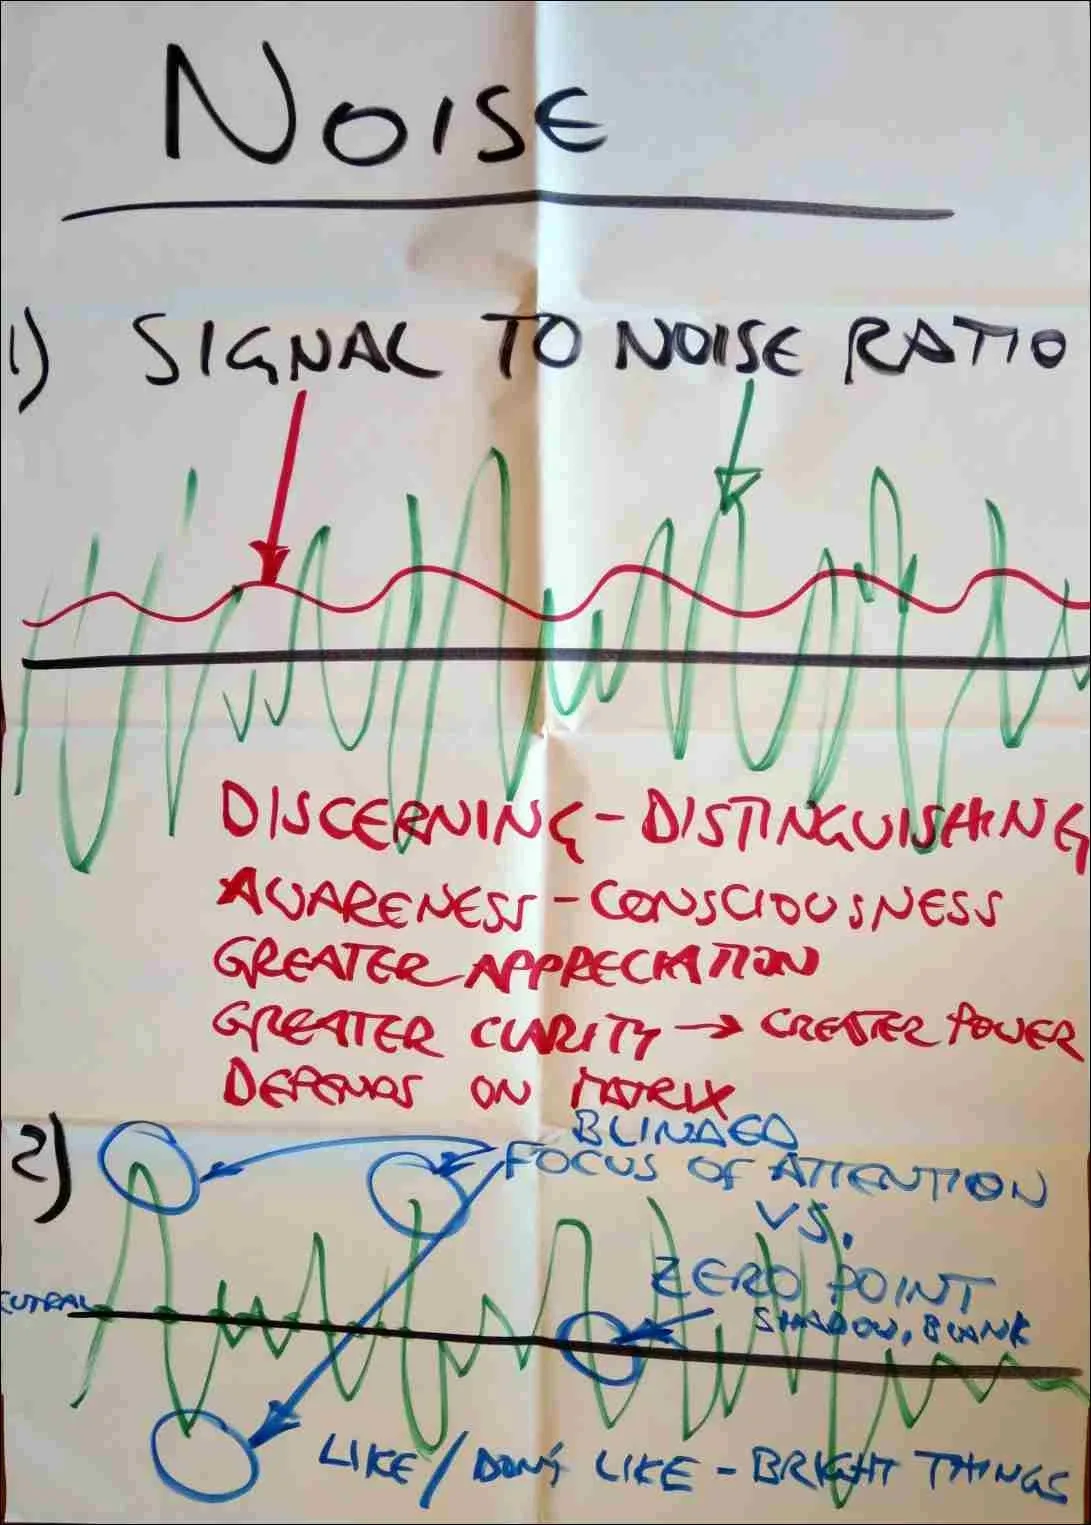 NOISE
1) SIGNAL TO NOISE RATIO
DISCERNING - DISTINGUISHING
AWARENESS - CONSCIOUSNESS
GREATER APPRECIATION
GREATER CLARITY → GREATER POWER
DEPENDS ON MATRIX
2)
BLINDED
FOCUS OF ATTENTION
VS.
ZERO POINT
EUTRAL
SHADOW, BLANK
LIKE / DON'T LIKE - BRIGHT THINGS